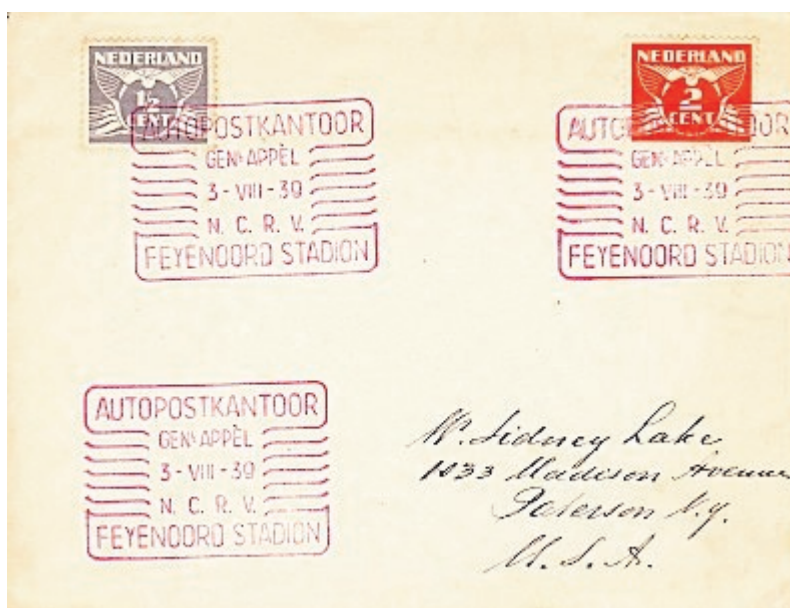 NEDERLAND
1½
CENT
AUTOPOSTKANTOOR
GENL APPÈL
3-VIII-39
N. C. R. V.
FEYENOORD STADION
NEDERLAND
2
CENT
AUTOPOSTKANTOOR
GENL APPÈL
3-VIII-39
N. C. R. V.
FEYENOORD STADION
AUTOPOSTKANTOOR
GENL APPÈL
3-VIII-39
N. C. R. V.
FEYENOORD STADION
W. Sidney Lake
1033 Madison Avenue
Paterson N.J.
U.S.A.